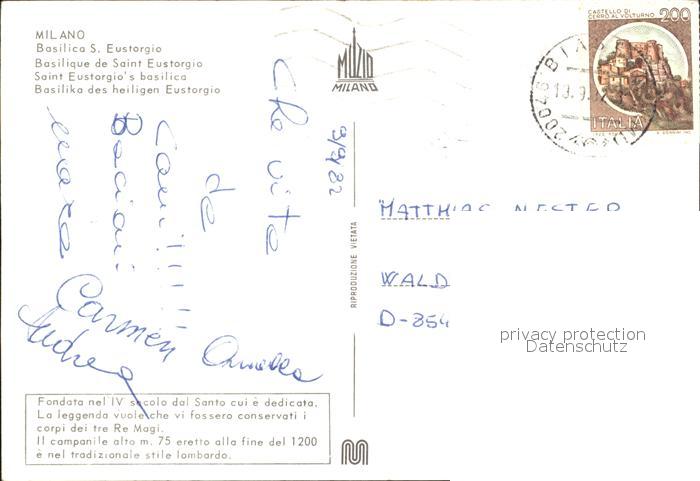 MILANO
Basilica S. Eustorgio
Basilique de Saint Eustorgio
Saint Eustorgio's basilica
Basilika des heiligen Eustorgio
MUZIO
MILANO
CASTELLO DI
CERRO AL VOLTURNO
200
ITALIA
20046 BIA
13.9.
9/9/82
Che vita
da
cani!!!!!!
Bacioni
Carmen
Andrea
RIPRODUZIONE VIETATA
MATTHIAS NESTER
WALD
D-854
privacy protection
Datenschutz
Fondata nel IV secolo dal Santo cui è dedicata.
La leggenda vuole che vi fossero conservati i
corpi dei tre Re Magi.
Il campanile alto m. 75 eretto alla fine del 1200
è nel tradizionale stile lombardo.